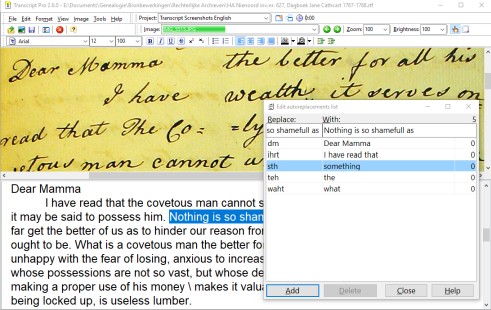 Transcript Pro 2.8.0 - E:\Documents\Genealogie\Bronbewerkingen\Rechterlijke Archieven\HA Niensord inv.nr. 627, Dagboek Jane Cathcart 1767-1768.rtf
File Edit Image Format View Tools Help Project: Transcript Screenshots English 0:00
Image:
Zoom: 100 Brightness: 100
Arial 12 100
Dear Mamma the better for all his
I have wealth, it serves on
read that The Co= =ly
=tous man cannot
Dear Mamma
I have read that the covetous man cannot s
it may be said to possess him. Nothing is so sham
far get the better of us as to hinder our reason from
ought to be. What is a covetous man the better fo
unhappy with the fear of losing, anxious to increas
whose possessions are not so vast, but whose de
making a proper use of his money \ makes it valua
being locked up, is useless lumber.
Edit autoreplacements list
Replace: With: 5
so shamefull as Nothing is so shamefull as
dm Dear Mamma 0
ihrt I have read that 0
sth something 0
teh the 0
waht what 0
Add Delete Close Help